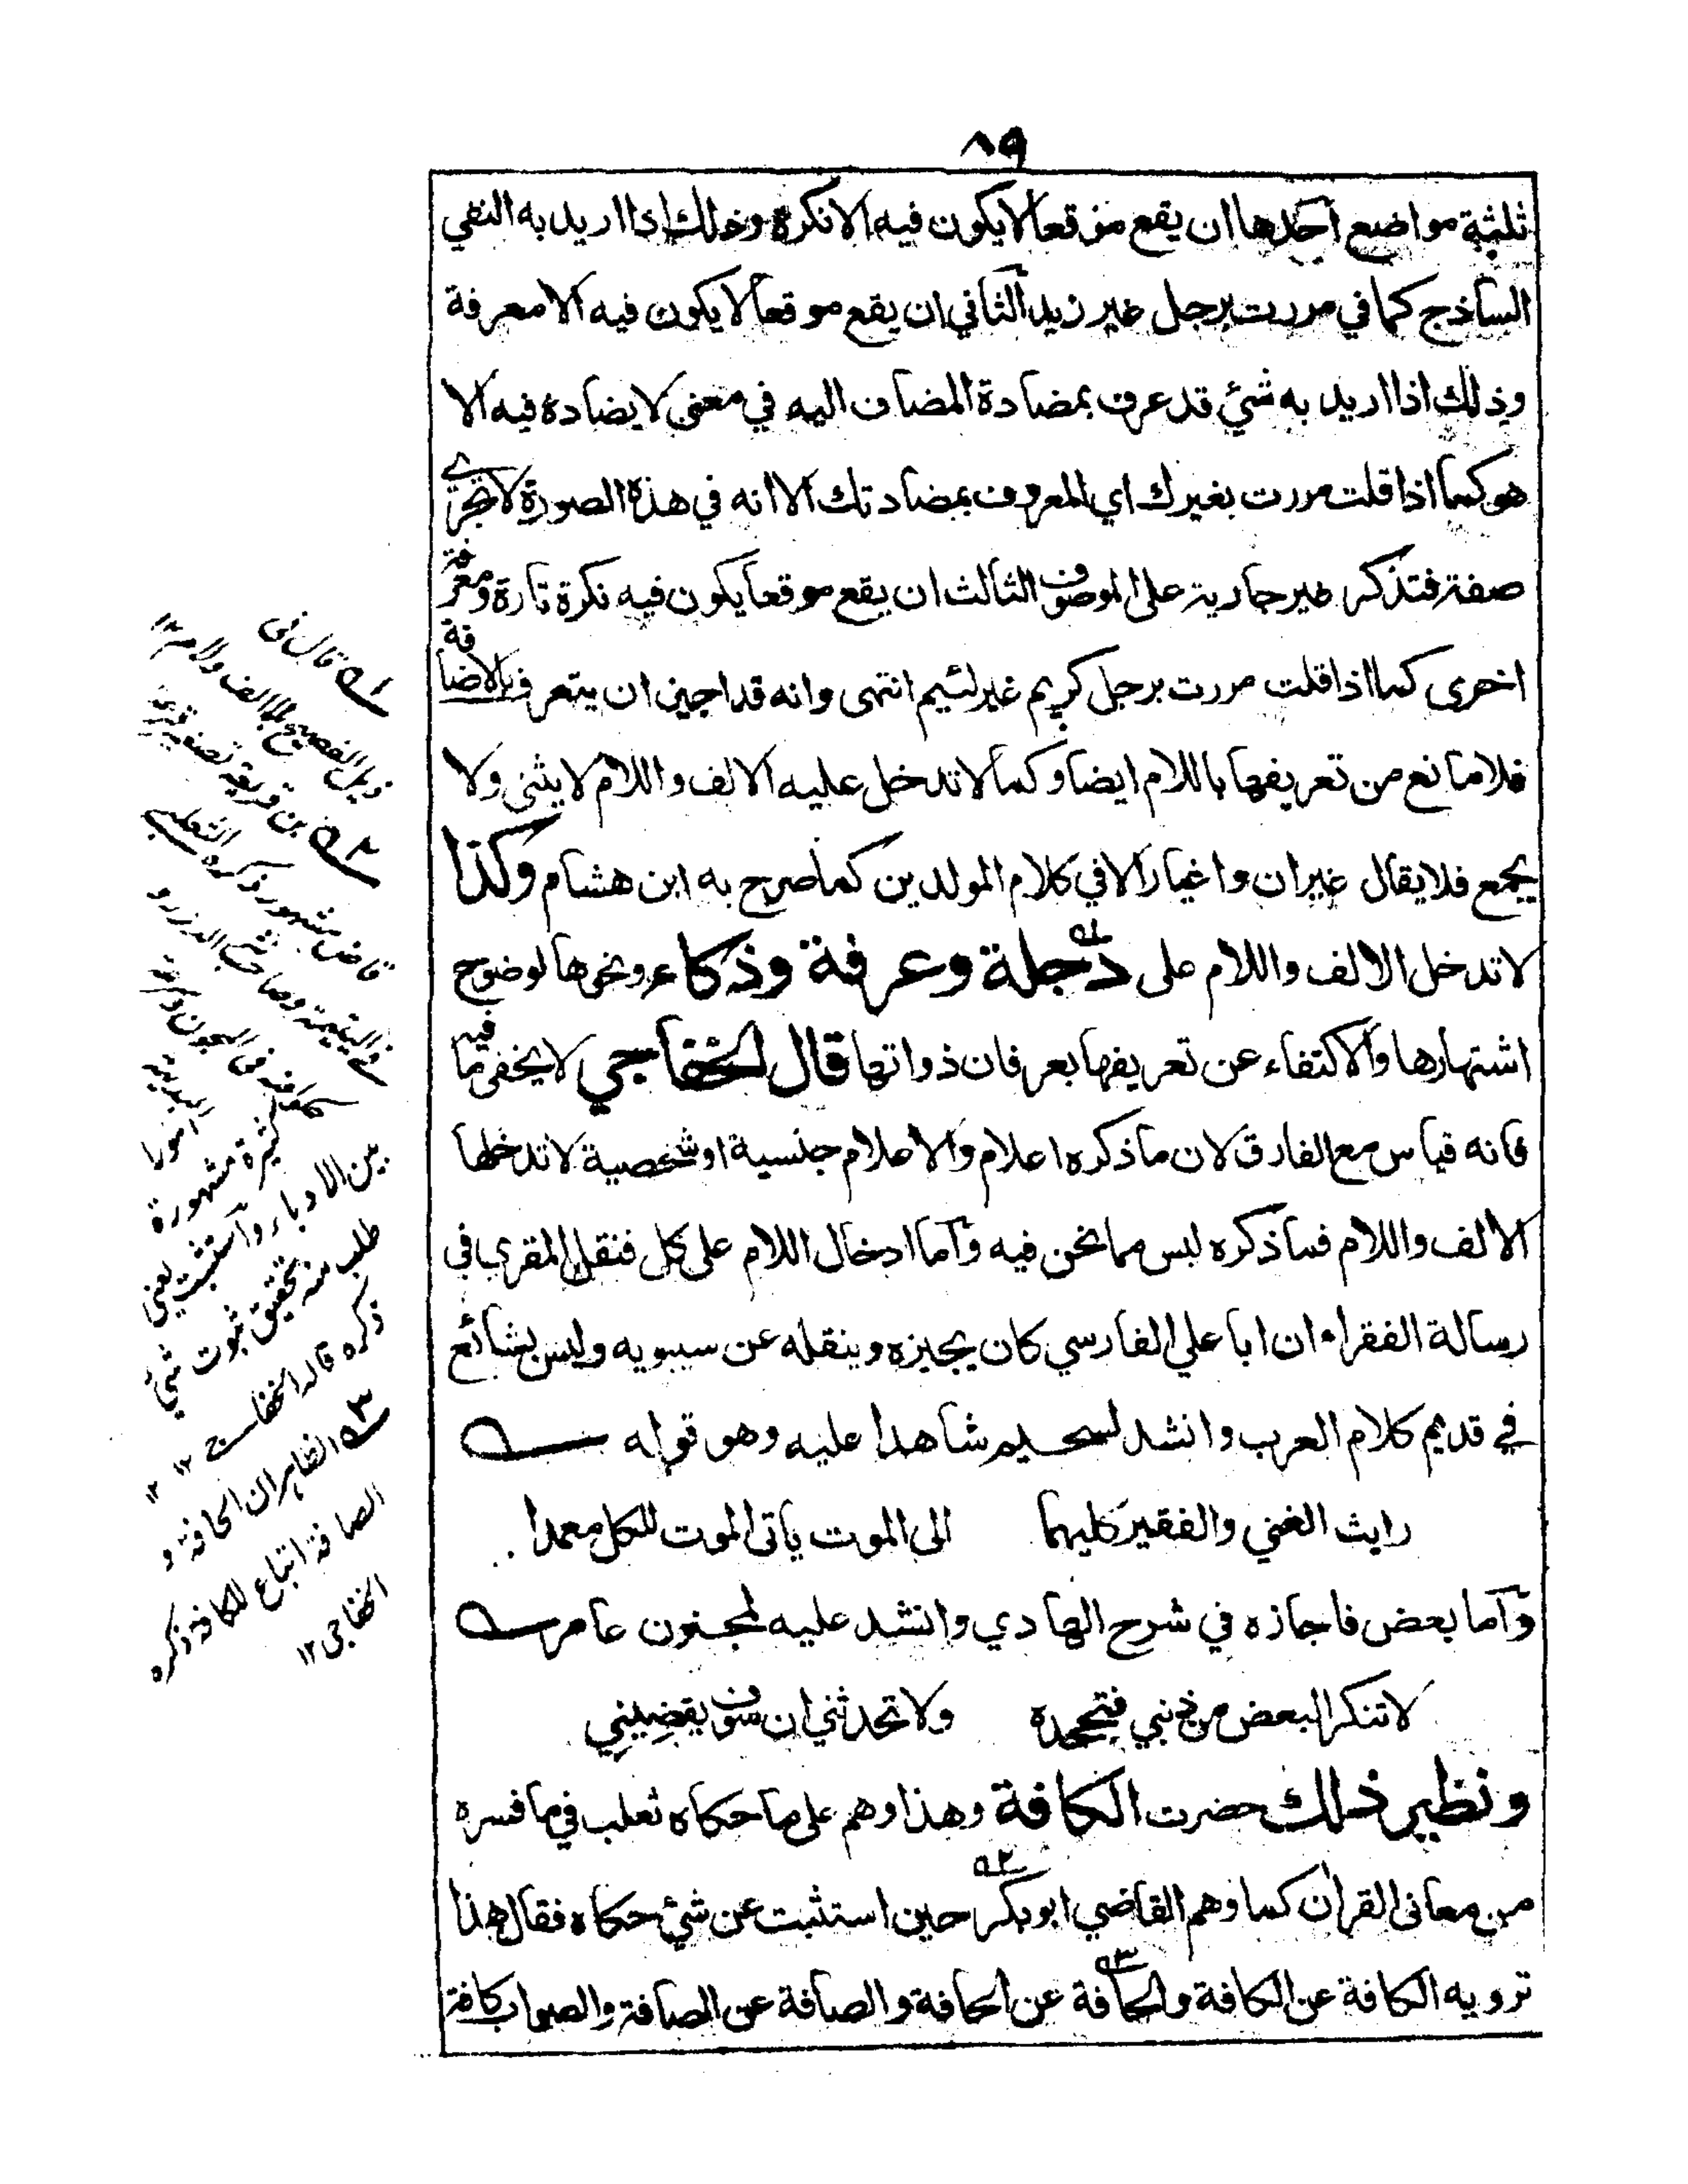 ٨٩
ثلثة مواضع احدها ان يقع موقعا لا يكون فيه الا نكرة وذلك اذا اريد به النفي
الساذج كما في مررت برجل غير زيد الثاني ان يقع موقعا لا يكون فيه الا معرفة
وذلك اذا اريد به شئ قد عرف بمضادة المضاف اليه في معنى لا يضاده فيه الا
هو كما اذا قلت مررت بغيرك اي المعروف بمضادتك الا انه في هذه الصورة لا تجري
صفة فتذكر غير جارية على الموصوف الثالث ان يقع موقعا يكون فيه نكرة تارة ومعرفة
اخرى كما اذا قلت مررت برجل كريم غير لئيم انتهى وانه قد اجيز ان يتعرف بالاضافة
فلا مانع من تعريفها باللام ايضا وكما لا تدخل عليه الالف واللام لا يثنى ولا
يجمع فلا يقال غيران واغيار الا في كلام المولدين كما صرح به ابن هشام وكذا
لا تدخل الالف واللام على دجلة وعرفة وذكاء ونحوها لوضوح
اشتهارها والاكتفاء عن تعريفها بعرفان ذواتها قال الخفاجي لا يخفى ما فيه
فانه قياس مع الفارق لان ما ذكره اعلام والاعلام جنسية او شخصية لا تدخلها
الالف واللام فما ذكره ليس مما نحن فيه واما ادخال اللام على كل فنقل المقري في
رسالة الفقراء ان ابا علي الفارسي كان يجيزه وينقله عن سيبويه وليس بشائع
في قديم كلام العرب وانشد لسحيم شاهدا عليه وهو قوله
رايت الغني والفقير كليهما الى الموت ياتى الموت للكل معمدا
واما بعض فاجازه في شرح الهادي وانشد عليه لمجنون عامر
لا تنكر البعض من ذنبي فتجحده ولا تحدثني ان سوف يقضيني
ونظير ذلك حضرت الكافة وهذا وهم على ما حكاه ثعلب في ما فسره
من معانى القران كما وهم القاضي ابو بكر حين استثبت عن شئ حكاه فقال هذا
ترويه الكافة عن الكافة والحافة عن الحافة والصافة عن الصافة والصواب كافة
١ قال فى
ذيل الفصيح بلا الف ولام ١٢
٢ بن قريعة
قاض مشهور ذكره الثعلبى
فى اليتيمة وصاحب
كثيرة مشهورة
بين الادباء واستثبت يعنى
طلب منه تحقيق ثبوت شئ
ذكره قاله الخفاجى ١٢ ١٢
٣ الظاهر ان الحافة و
الصافة اتباع للكافة ذكره
الخفاجى ١٢